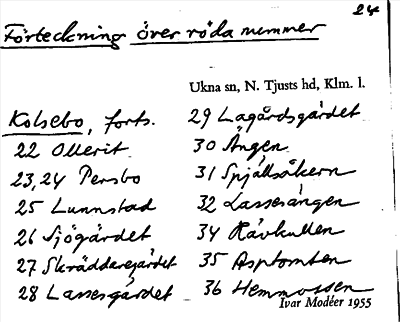 24
Förteckning över röda nummer
Ukna sn, N. Tjusts hd, Klm. l.
Kolsebo, forts.
22 Ollerit
23,24 Persbo
25 Lunnstad
26 Sjögärdet
27 Skräddaregärdet
28 Lassesgärdet
29 Lagårdsgärdet
30 Ängen
31 Spjällsåkern
32 Lassesängen
34 Rävkullen
35 Asptomten
36 Hemmossen
Ivar Modéer 1955